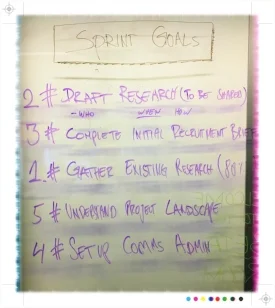 SPRINT GOALS
2 # DRAFT RESEARCH (TO BE SHARED)
- WHO WHEN HOW
3 # COMPLETE INITIAL RECRUITMENT BRIEF
1. # GATHER EXISTING RESEARCH (80%
5 # UNDERSTAND PROJECT LANDSCAPE
4 # SETUP COMMS ADMIN